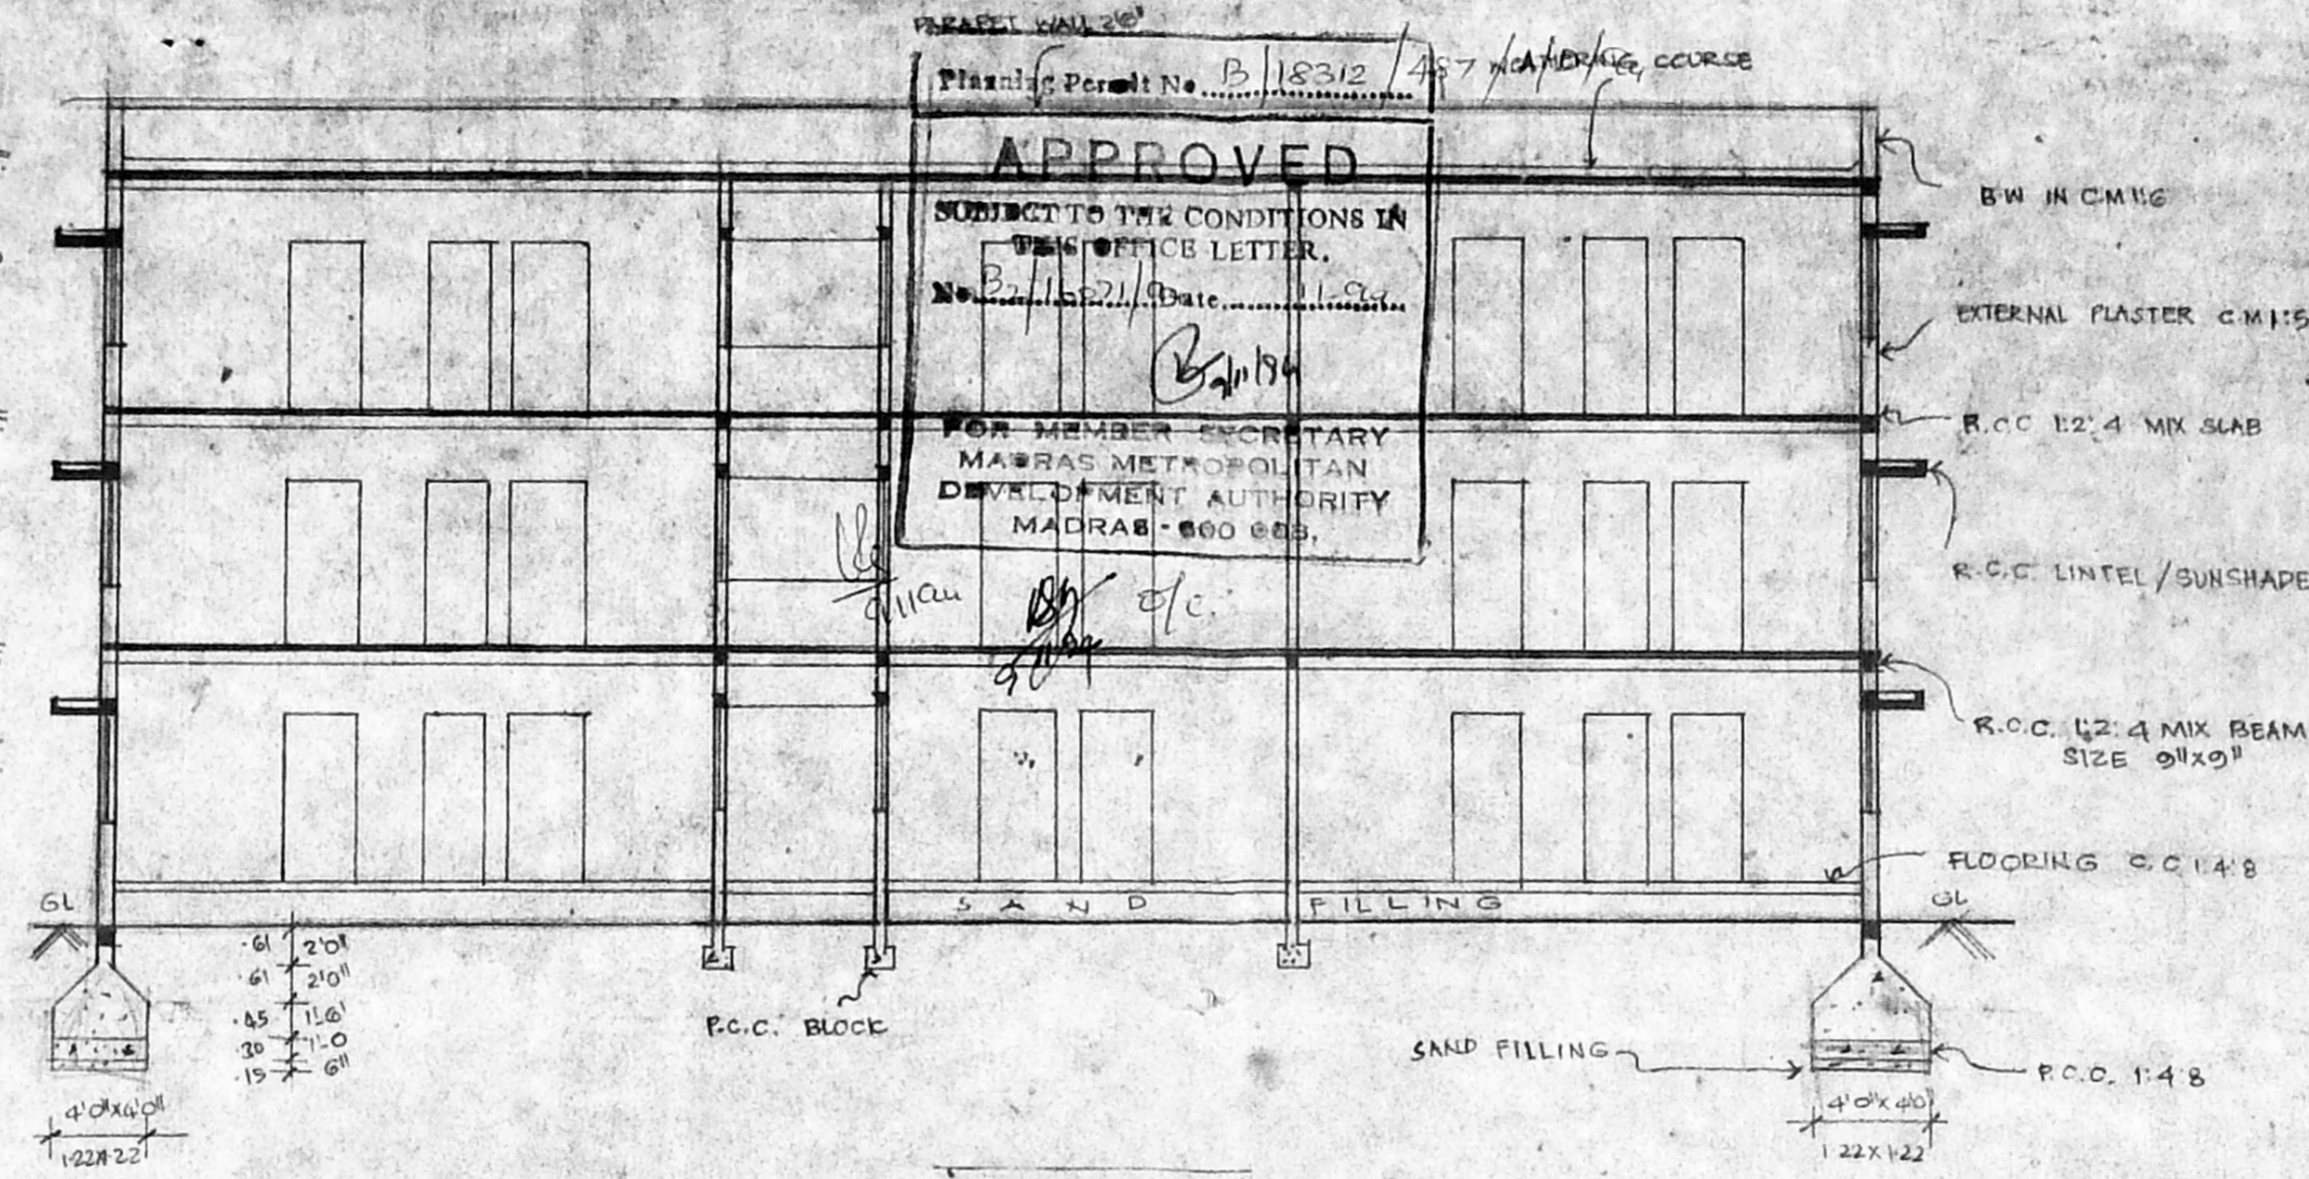 PARAPET WALL 2'6"
Planning Permit No. B/18312/487
WEATHERING COURSE
APPROVED
SUBJECT TO THE CONDITIONS IN
THIS OFFICE LETTER.
No. Date
FOR MEMBER SECRETARY
MADRAS METROPOLITAN
DEVELOPMENT AUTHORITY
MADRAS - 600 008.
O/C.
B.W IN C.M 1:6
EXTERNAL PLASTER C.M 1:5
R.C.C 1:2:4 MIX SLAB
R.C.C. LINTEL/SUNSHADE
R.C.C. 1:2:4 MIX BEAM
SIZE 9"x9"
FLOORING C.C 1:4:8
GL
SAND FILLING
GL
.61 2'0"
.61 2'0"
.45 1'6"
.30 1'-0
.15 6"
P.C.C. BLOCK
SAND FILLING
P.C.C. 1:4:8
4'0"x4'0"
1.22x1.22
4'0"x4'0
1.22x1.22